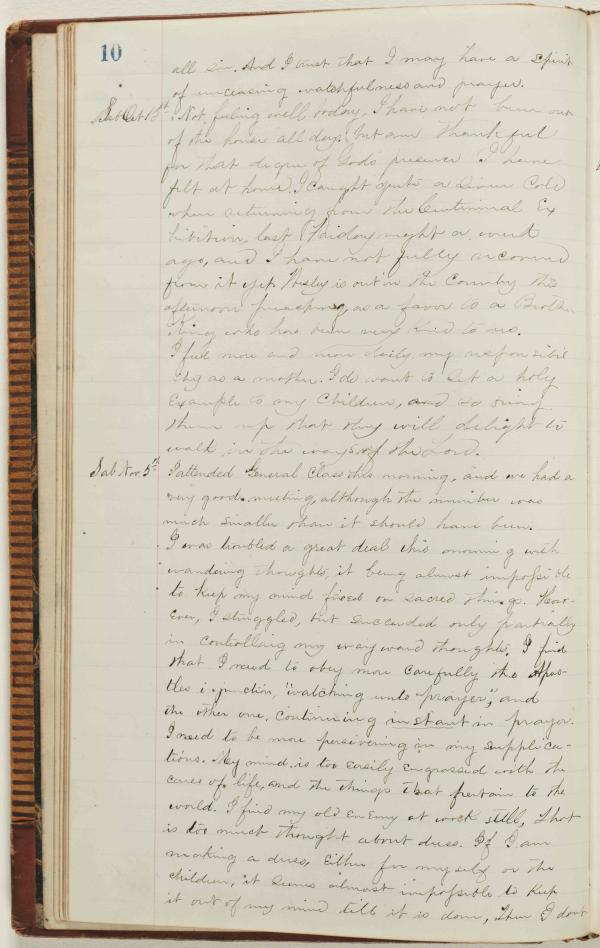 10
all sin. And I trust that I may have a spirit
of unceasing watchfulness and prayer.
Sab Oct 15th. Not feeling well today, I have not been out
of the house all day. But am thankful
for that degree of Gods presence I have
felt at home. I caught quite a severe Cold
when returning from the Centennial Ex
hibition, last Friday night a week
ago, and I have not fully recovered
from it yet. Wesley is out in the Country this
afternoon preaching, as a favor to a Brother
King who has been very kind to us.
I feel more and more daily my responsibil
ity as a mother. I do want to set a holy
Example to my Children, and so bring
them up that they will delight to
walk in the ways of the Lord.
Sab Nov. 5th I attended General Class this morning, and we had a
very good meeting, although the number was
much smaller than it should have been.
I was troubled a great deal this morning with
wandering thoughts, it being almost impossible
to keep my mind fixed on sacred things. How-
Ever, I struggled, but succeeded only partially
in controlling my wayward thoughts. I find
that I need to obey more carefully the apos-
tles injunction, "watching unto prayer", and
the other one, Continuing instant in prayer.
I need to be more persevering in my supplica-
tions. My mind is too easily engrossed with the
cares of life, and the things that pertain to the
world. I find my old enemy at work still, that
is too much thought about dress. If I am
making a dress, Either for myself or the
children, it seems almost impossible to keep
it out of my mind till it is done, then I dont